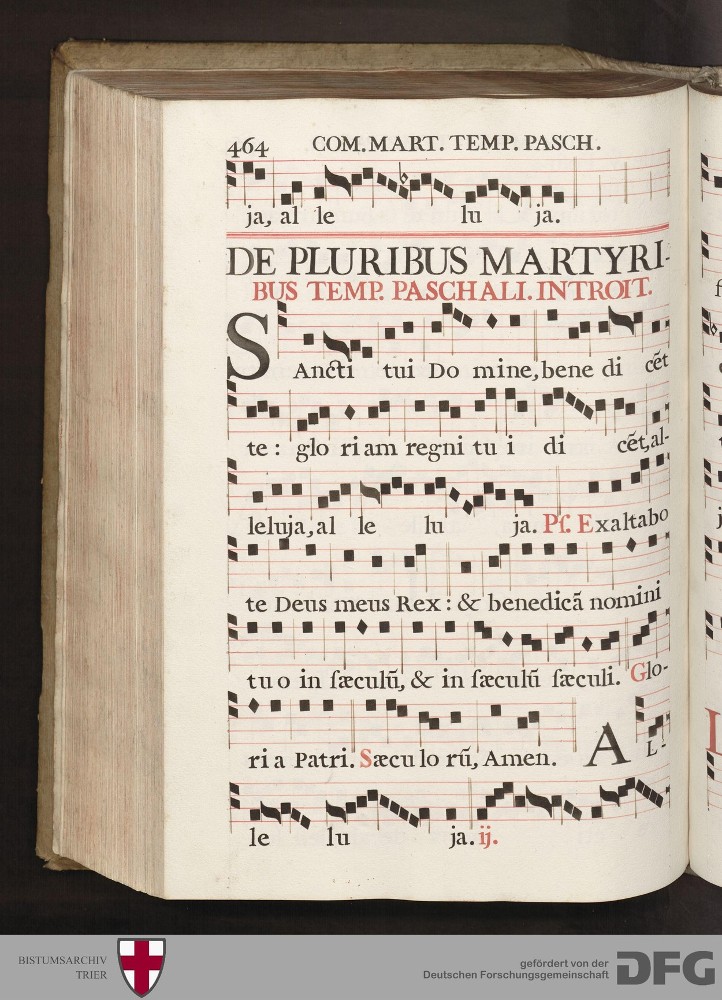 464 COM. MART. TEMP. PASCH.
ja, al le lu ja.
DE PLURIBUS MARTYRI-
BUS TEMP. PASCHALI. INTROIT.
SAncti tui Do mine, bene di cẽt
te: glo ri am regni tu i di cẽt, al-
leluja, al le lu ja. Pſ. Exaltabo
te Deus meus Rex: & benedicã nomini
tu o in ſæculũ, & in ſæculũ ſæculi. Glo-
ri a Patri. Sæcu lo rũ, Amen. AL-
le lu ja. ij.
BISTUMSARCHIV
TRIER
gefördert von der
Deutschen Forschungsgemeinschaft
DFG